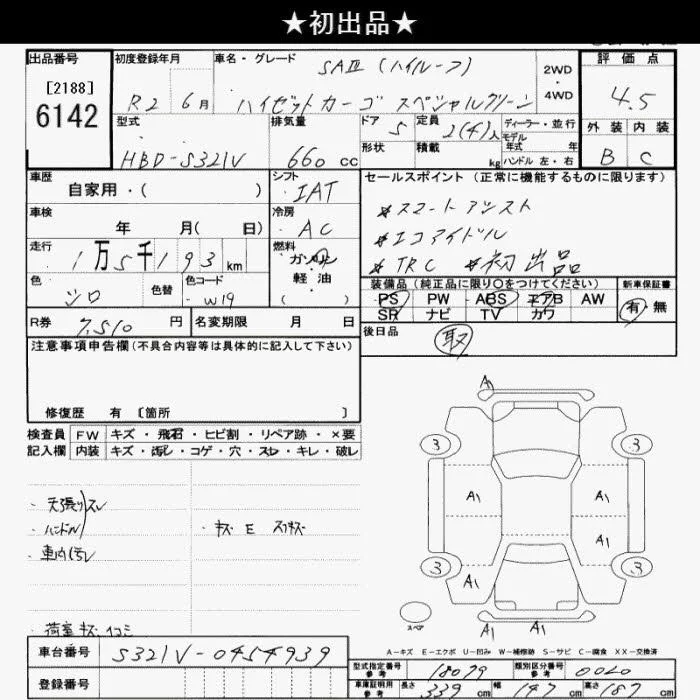 ★初出品★
出品番号
[2188]
6142
初度登録年月
R2 6月
車名・グレード
SAⅢ (ハイルーフ)
ハイゼットカーゴ スペシャルクリーン
2WD
・
4WD
評価点
4.5
外装 内装
B C
型式
HBD-S321V
排気量
660 cc
ドア
5
定員
2(4)人
ディーラー・並行
モデル
年式 年
形状
積載
kg
ハンドル 左・右
車歴
自家用・( )
シフト
IAT
セールスポイント (正常に機能するものに限ります)
*スマートアシスト
*エコアイドル
*TRC *初出品
車検
年 月( 日)
冷房
AC
走行
1万5千193km
燃料
ガソリン
・
軽油
( )
色
シロ
色替
色コード
W19
装備品 (純正品に限り○をつけてください)
PS PW ABS エアB AW
SR ナビ TV カワ
新車保証書
有・無
R券
7,510 円
名変期限 月 日
後日品
取
注意事項申告欄 (不具合内容等は具体的に記入して下さい)
修復歴 有 [箇所 ]
検査員
記入欄
FW キズ・飛石・ヒビ割・リペア跡・×要
内装 キズ・汚レ・コゲ・穴・スレ・キレ・破レ
・天張りスレ
・ハンドル
・キズ E スリキズ
・車内汚レ
・荷室キズ・凹ミ
A
3 3
A1 A1
A1
3 3
A1
A1 A1
スペア
A-キズ E-エクボ U-凹み W-補修跡 S-サビ C-腐食 XX-交換済
車台番号
S321V-0454939
登録番号
型式指定番号
参考
18079
類別区分番号
参考
0020
車庫証明用
参考
長さ 339cm 幅 147cm 高さ 187cm